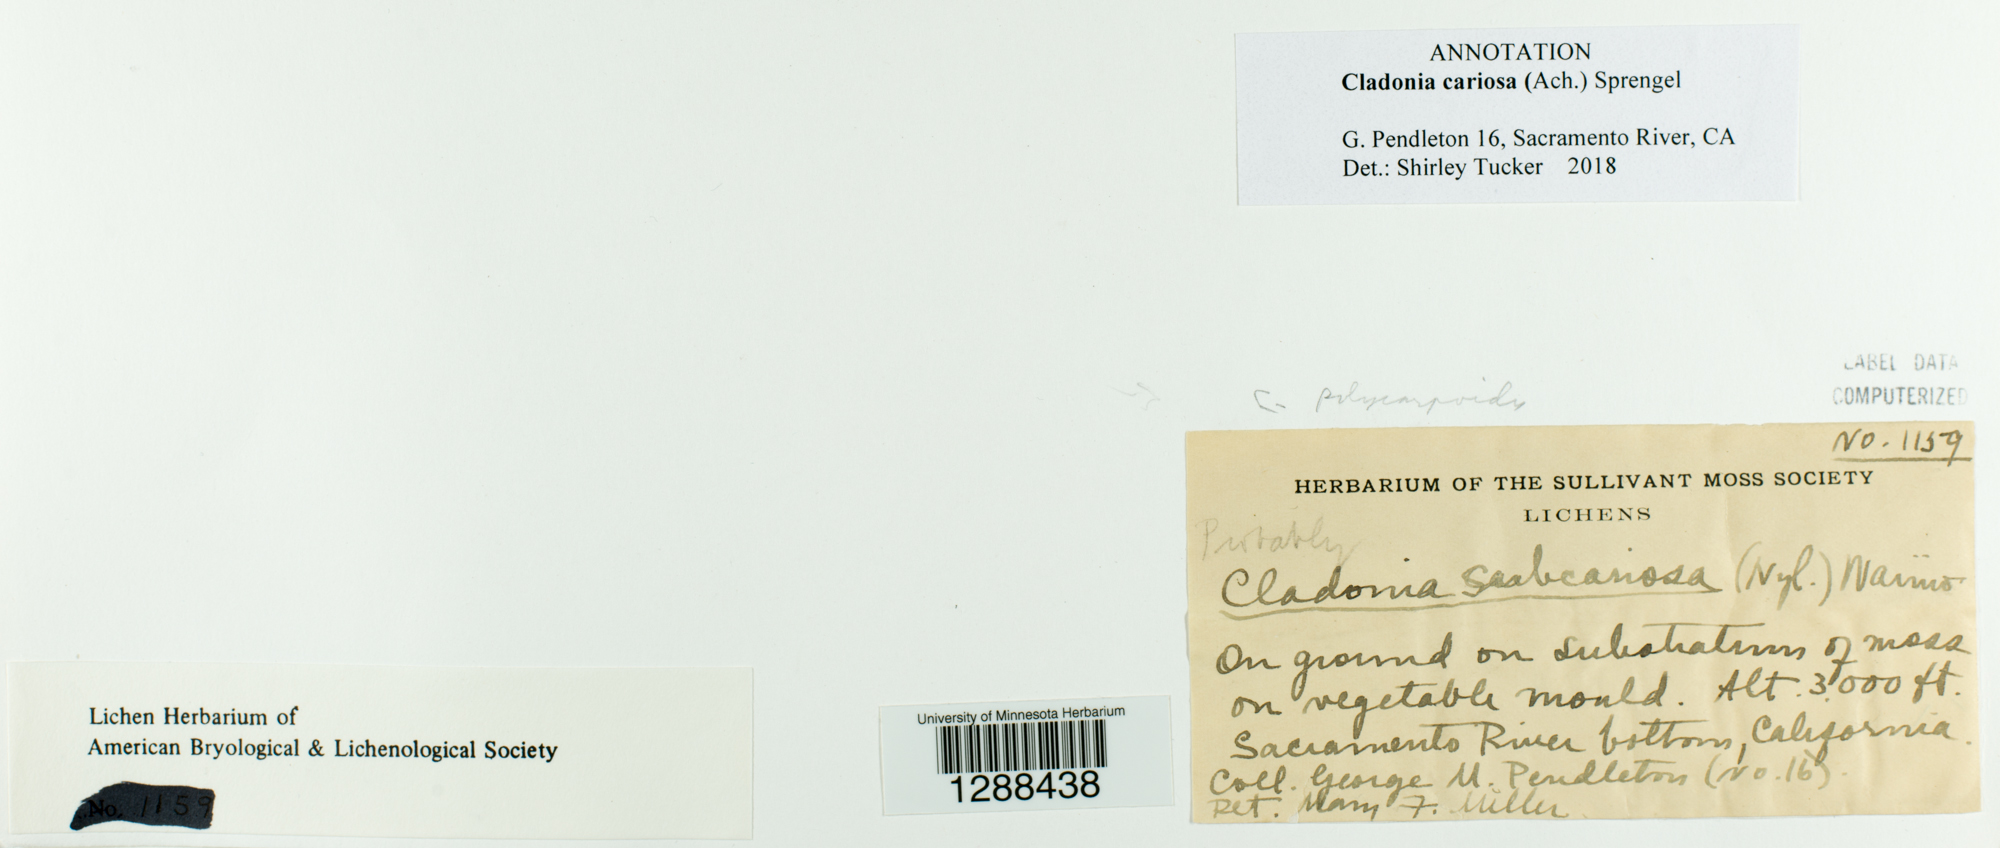 ANNOTATION
Cladonia cariosa (Ach.) Sprengel
G. Pendleton 16, Sacramento River, CA
Det.: Shirley Tucker 2018
LABEL DATA
COMPUTERIZED
No. 1159
HERBARIUM OF THE SULLIVANT MOSS SOCIETY
LICHENS
Probably
Cladonia subcariosa (Nyl.) Wainio
On ground on substratum of moss
on vegetable mould. Alt. 3,000 ft.
Sacramento River bottom, California.
Coll. George M. Pendleton (No. 16).
Det. Mary F. Miller
Lichen Herbarium of
American Bryological & Lichenological Society
No. 1159
University of Minnesota Herbarium
1288438